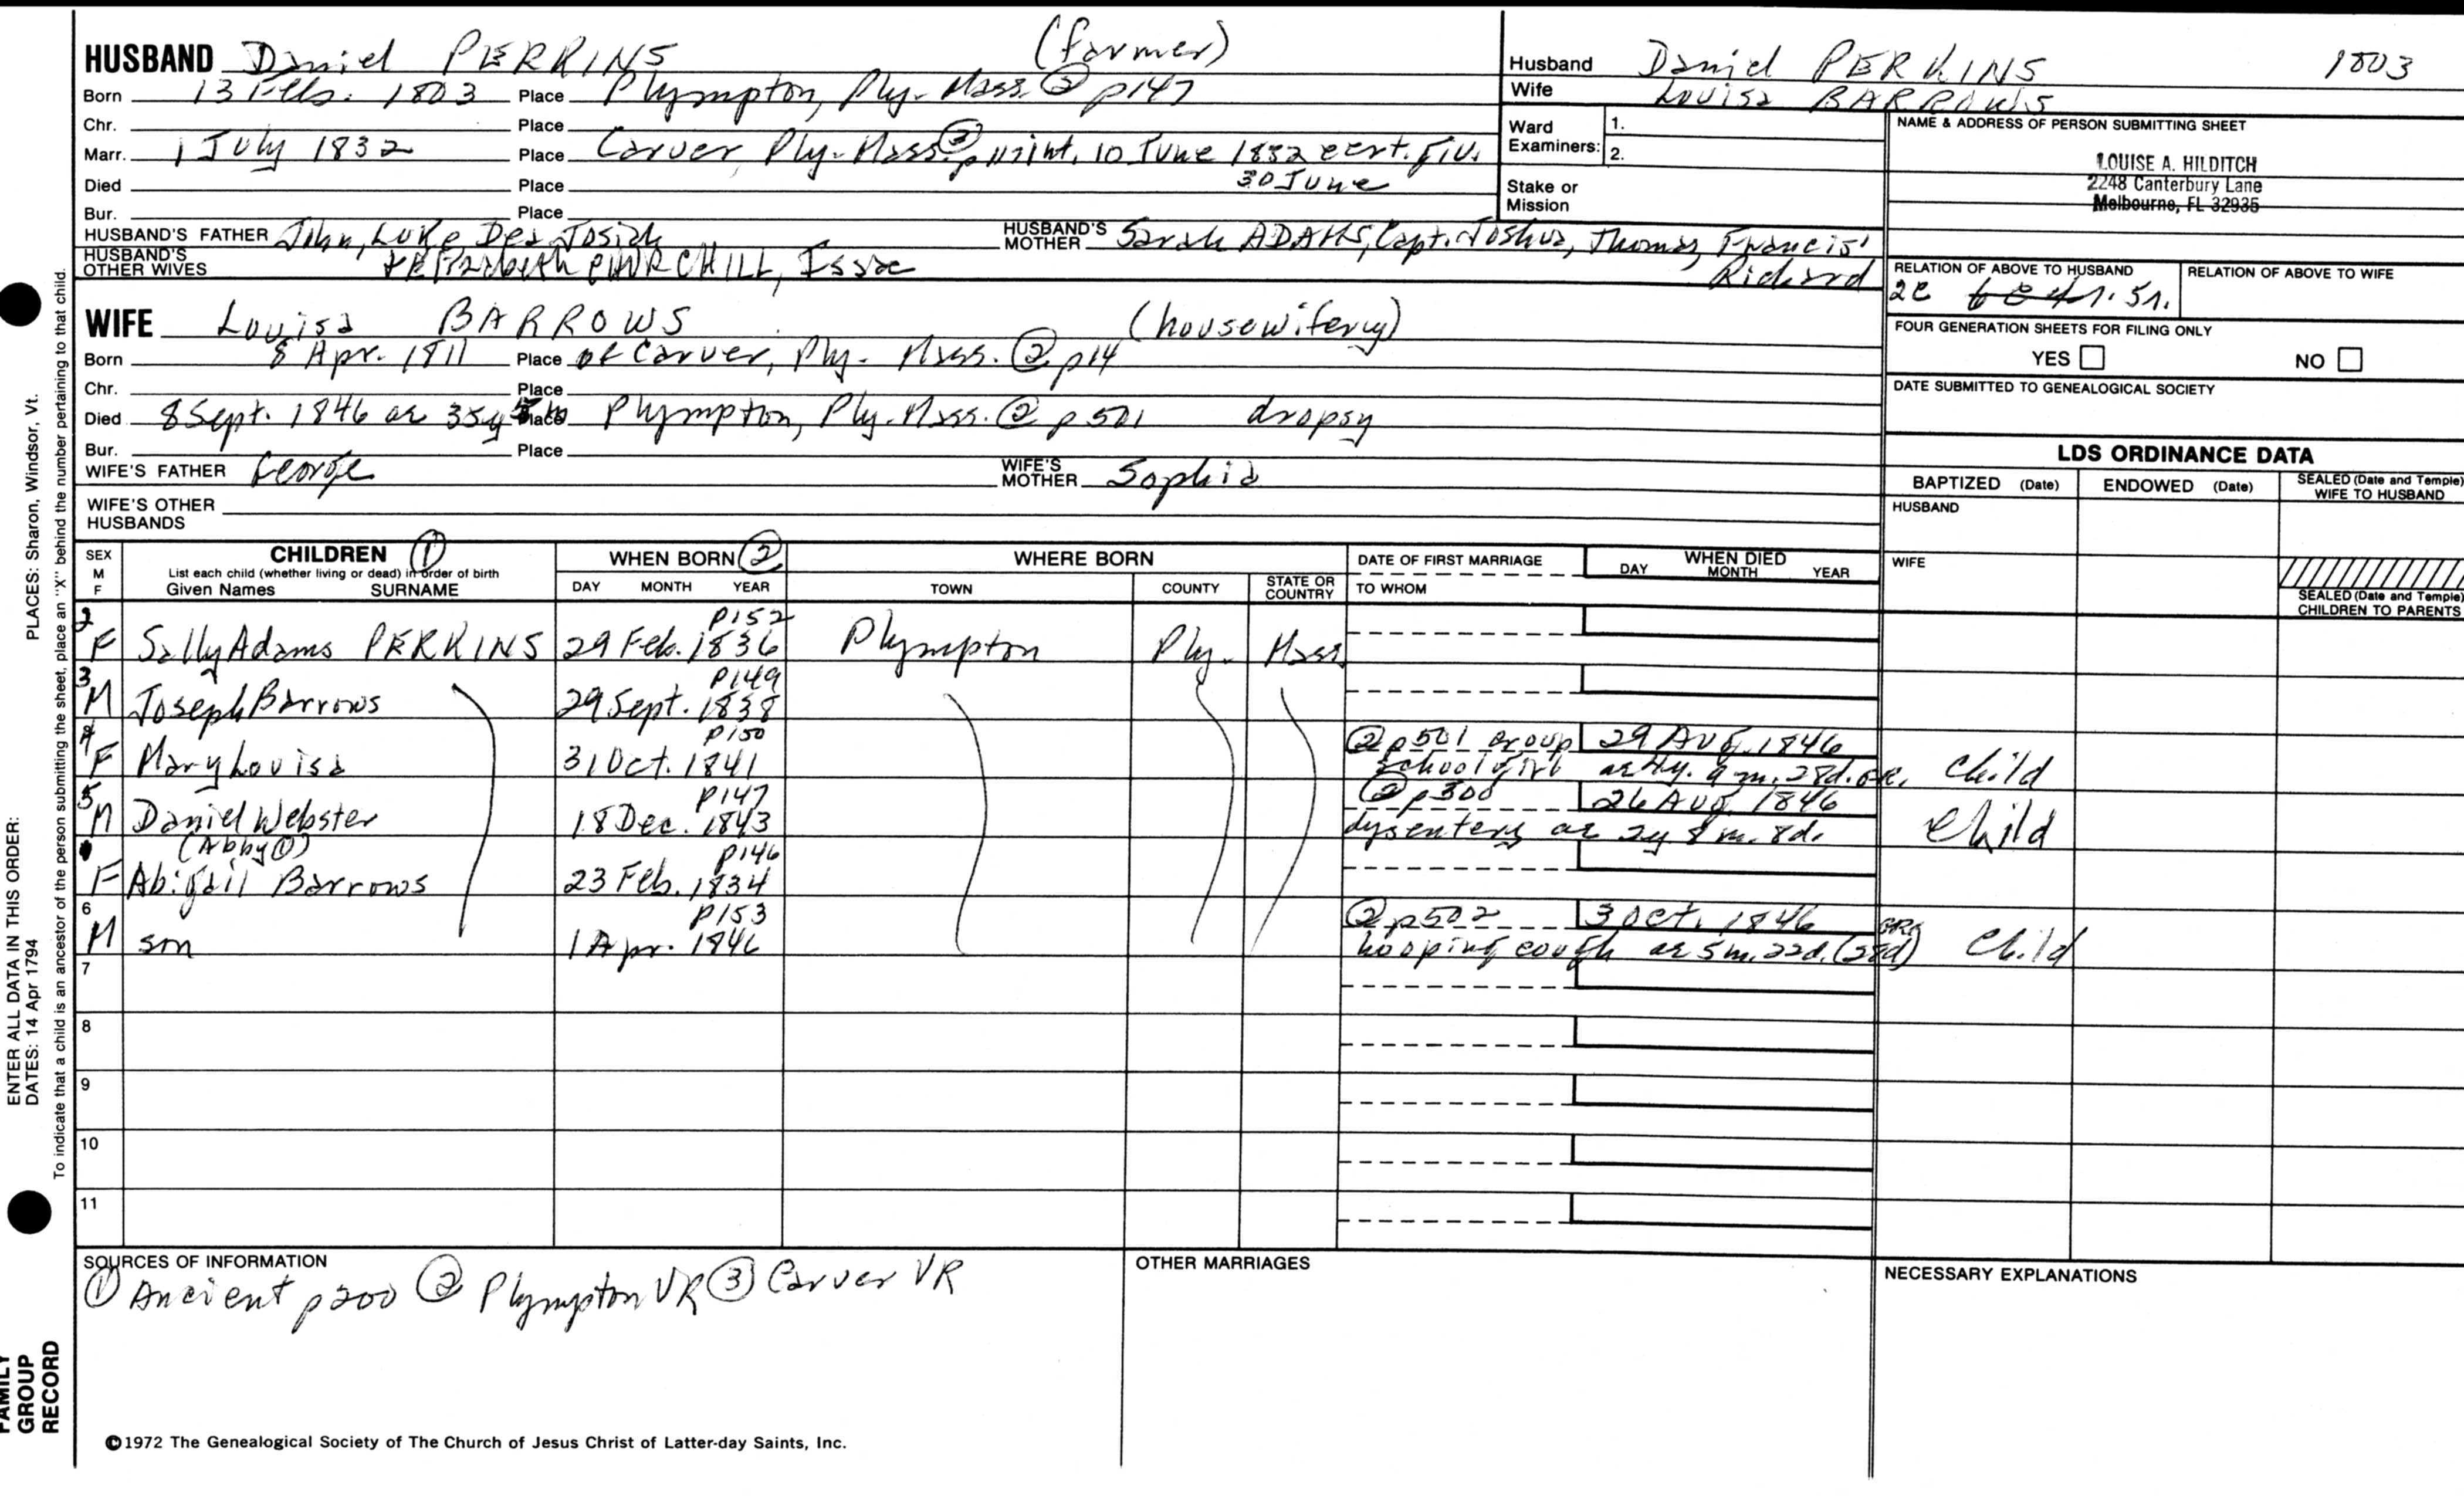 HUSBAND Daniel PERKINS (farmer)
Born 13 Feb. 1803 Place Plympton, Ply. Mass. ② p147
Chr. Place
Marr. 1 July 1832 Place Carver, Ply. Mass. ③ p int. 10 June 1832 cert. giv.
30 June
Died Place
Bur. Place
HUSBAND'S FATHER John, Luke, Dea. Josiah HUSBAND'S MOTHER Sarah ADAMS, Capt. Joshua, Thomas, Francis, Richard
HUSBAND'S OTHER WIVES Elizabeth CHURCHILL, Issac
WIFE Louisa BARROWS (housewifery)
Born 8 Apr. 1811 Place of Carver, Ply. Mass. ② p14
Chr. Place
Died 8 Sept. 1846 ae 35y Place Plympton, Ply. Mass. ② p501 dropsy
Bur. Place
WIFE'S FATHER George WIFE'S MOTHER Sophia
WIFE'S OTHER HUSBANDS
Husband Daniel PERKINS 1803
Wife Louisa BARROWS
Ward Examiners: 1.
2.
Stake or Mission
NAME & ADDRESS OF PERSON SUBMITTING SHEET
LOUISE A. HILDITCH
2248 Canterbury Lane
Melbourne, FL 32935
RELATION OF ABOVE TO HUSBAND RELATION OF ABOVE TO WIFE
2c
FOUR GENERATION SHEETS FOR FILING ONLY
YES NO
DATE SUBMITTED TO GENEALOGICAL SOCIETY
LDS ORDINANCE DATA
BAPTIZED (Date) ENDOWED (Date) SEALED (Date and Temple) WIFE TO HUSBAND
HUSBAND
WIFE
SEALED (Date and Temple) CHILDREN TO PARENTS
SEX M F CHILDREN ① WHEN BORN ② WHERE BORN DATE OF FIRST MARRIAGE WHEN DIED
List each child (whether living or dead) in order of birth
Given Names SURNAME DAY MONTH YEAR TOWN COUNTY STATE OR COUNTRY TO WHOM DAY MONTH YEAR
2 p152
F Sally Adams PERKINS 29 Feb. 1836 Plympton Ply. Mass.
3 p149
M Joseph Barrows 29 Sept. 1838
4 p150 ② p501 croup 29 Aug. 1846
F Mary Louisa 31 Oct. 1841 schoolgirl ae 4y. 9m. 28d. GR. child
5 p147 ② p300 26 Aug. 1846
M Daniel Webster 18 Dec. 1843 dysentery ae 2y 8m. 8d. child
(Abby ①) p146
F Abigail Barrows 23 Feb. 1834
6 p153 ② p502 3 Oct. 1846
M son 1 Apr. 1846 hooping cough ae 5m. 22d. (28d) GR6 child
7
8
9
10
11
SOURCES OF INFORMATION
① Ancient p200 ② Plympton VR ③ Carver VR
OTHER MARRIAGES
NECESSARY EXPLANATIONS
©1972 The Genealogical Society of The Church of Jesus Christ of Latter-day Saints, Inc.
ENTER ALL DATA IN THIS ORDER:
DATES: 14 Apr 1794 PLACES: Sharon, Windsor, Vt.
To indicate that a child is an ancestor of the person submitting the sheet, place an "X" behind the number pertaining to that child.
FAMILY GROUP RECORD